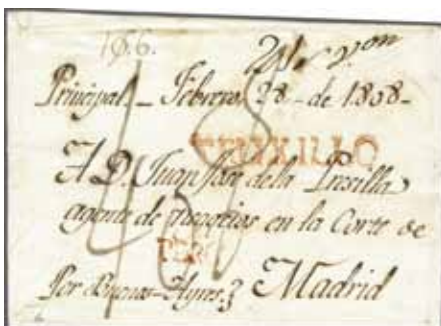 166.
Principal - Febrero 28 - de 1808 -
TRUXILLO
A D. Juan Josè de la Presilla
agente de negocios en la Corte de
PERU
Por Buenos-Ayres Madrid